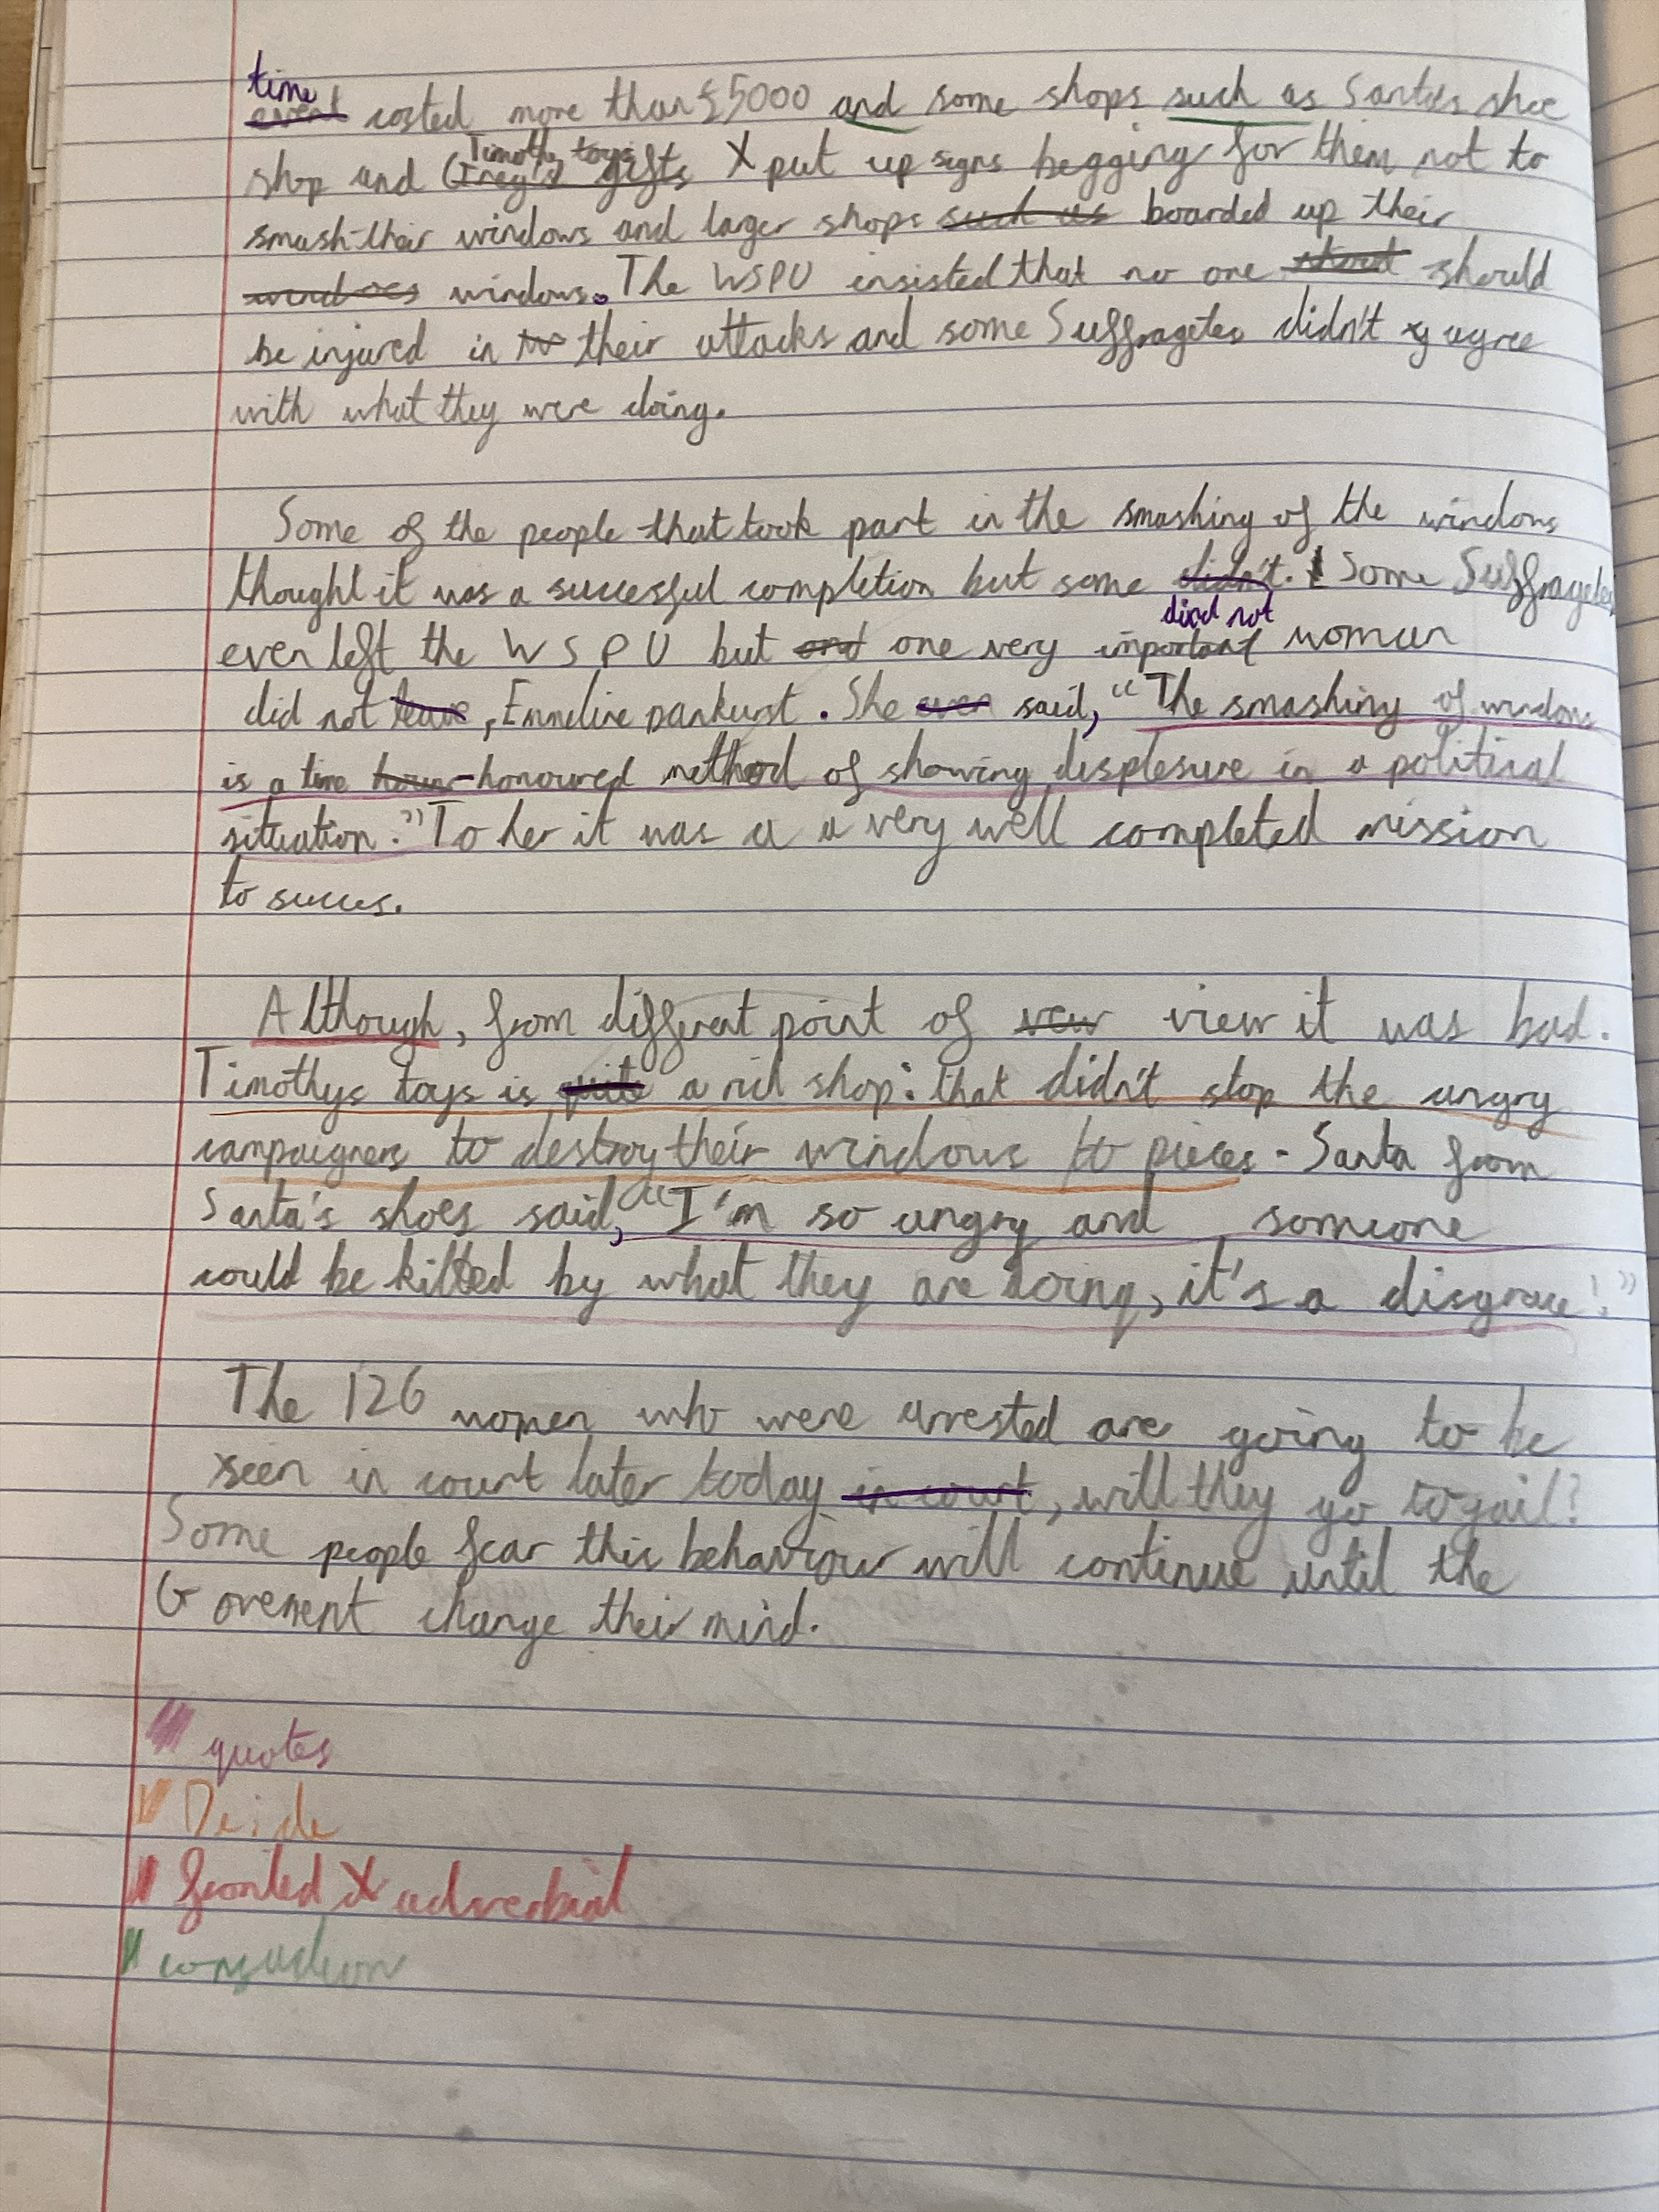 time
event costed more than £5000 and some shops such as Santas shoe
Timothy toys
shop and Greg's gifts X put up signs begging for them not to
smash their windows and larger shops such as boarded up their
windoes windows. The WSPU insisted that no one should
be injured in their attacks and some Suffragetes didn't agree
with what they were doing.
Some of the people that took part in the smashing of the windows
thought it was a successful completion but some didn't. Some Suffragetes
did not
even left the WSPU but and one very important woman
did not leave, Emmeline pankurst. She even said, "The smashing of windows
is a time hour-honoured method of showing displesure in a political
situation." To her it was a a very well completed mission
to succes.
Although, from different point of veiw view it was bad.
Timothys toys is quite a rich shop: that didn't stop the angry
campaigners to destroy their windows to pieces. Santa from
Santa's shoes said, "I'm so angry and someone
could be killed by what they are doing, it's a disgrace!."
The 126 women who were arrested are going to be
seen in court later today in court, will they go to jail?
Some people fear this behaviour will continue until the
Goverment change their mind.
quotes
De:de
fronted X adverbial